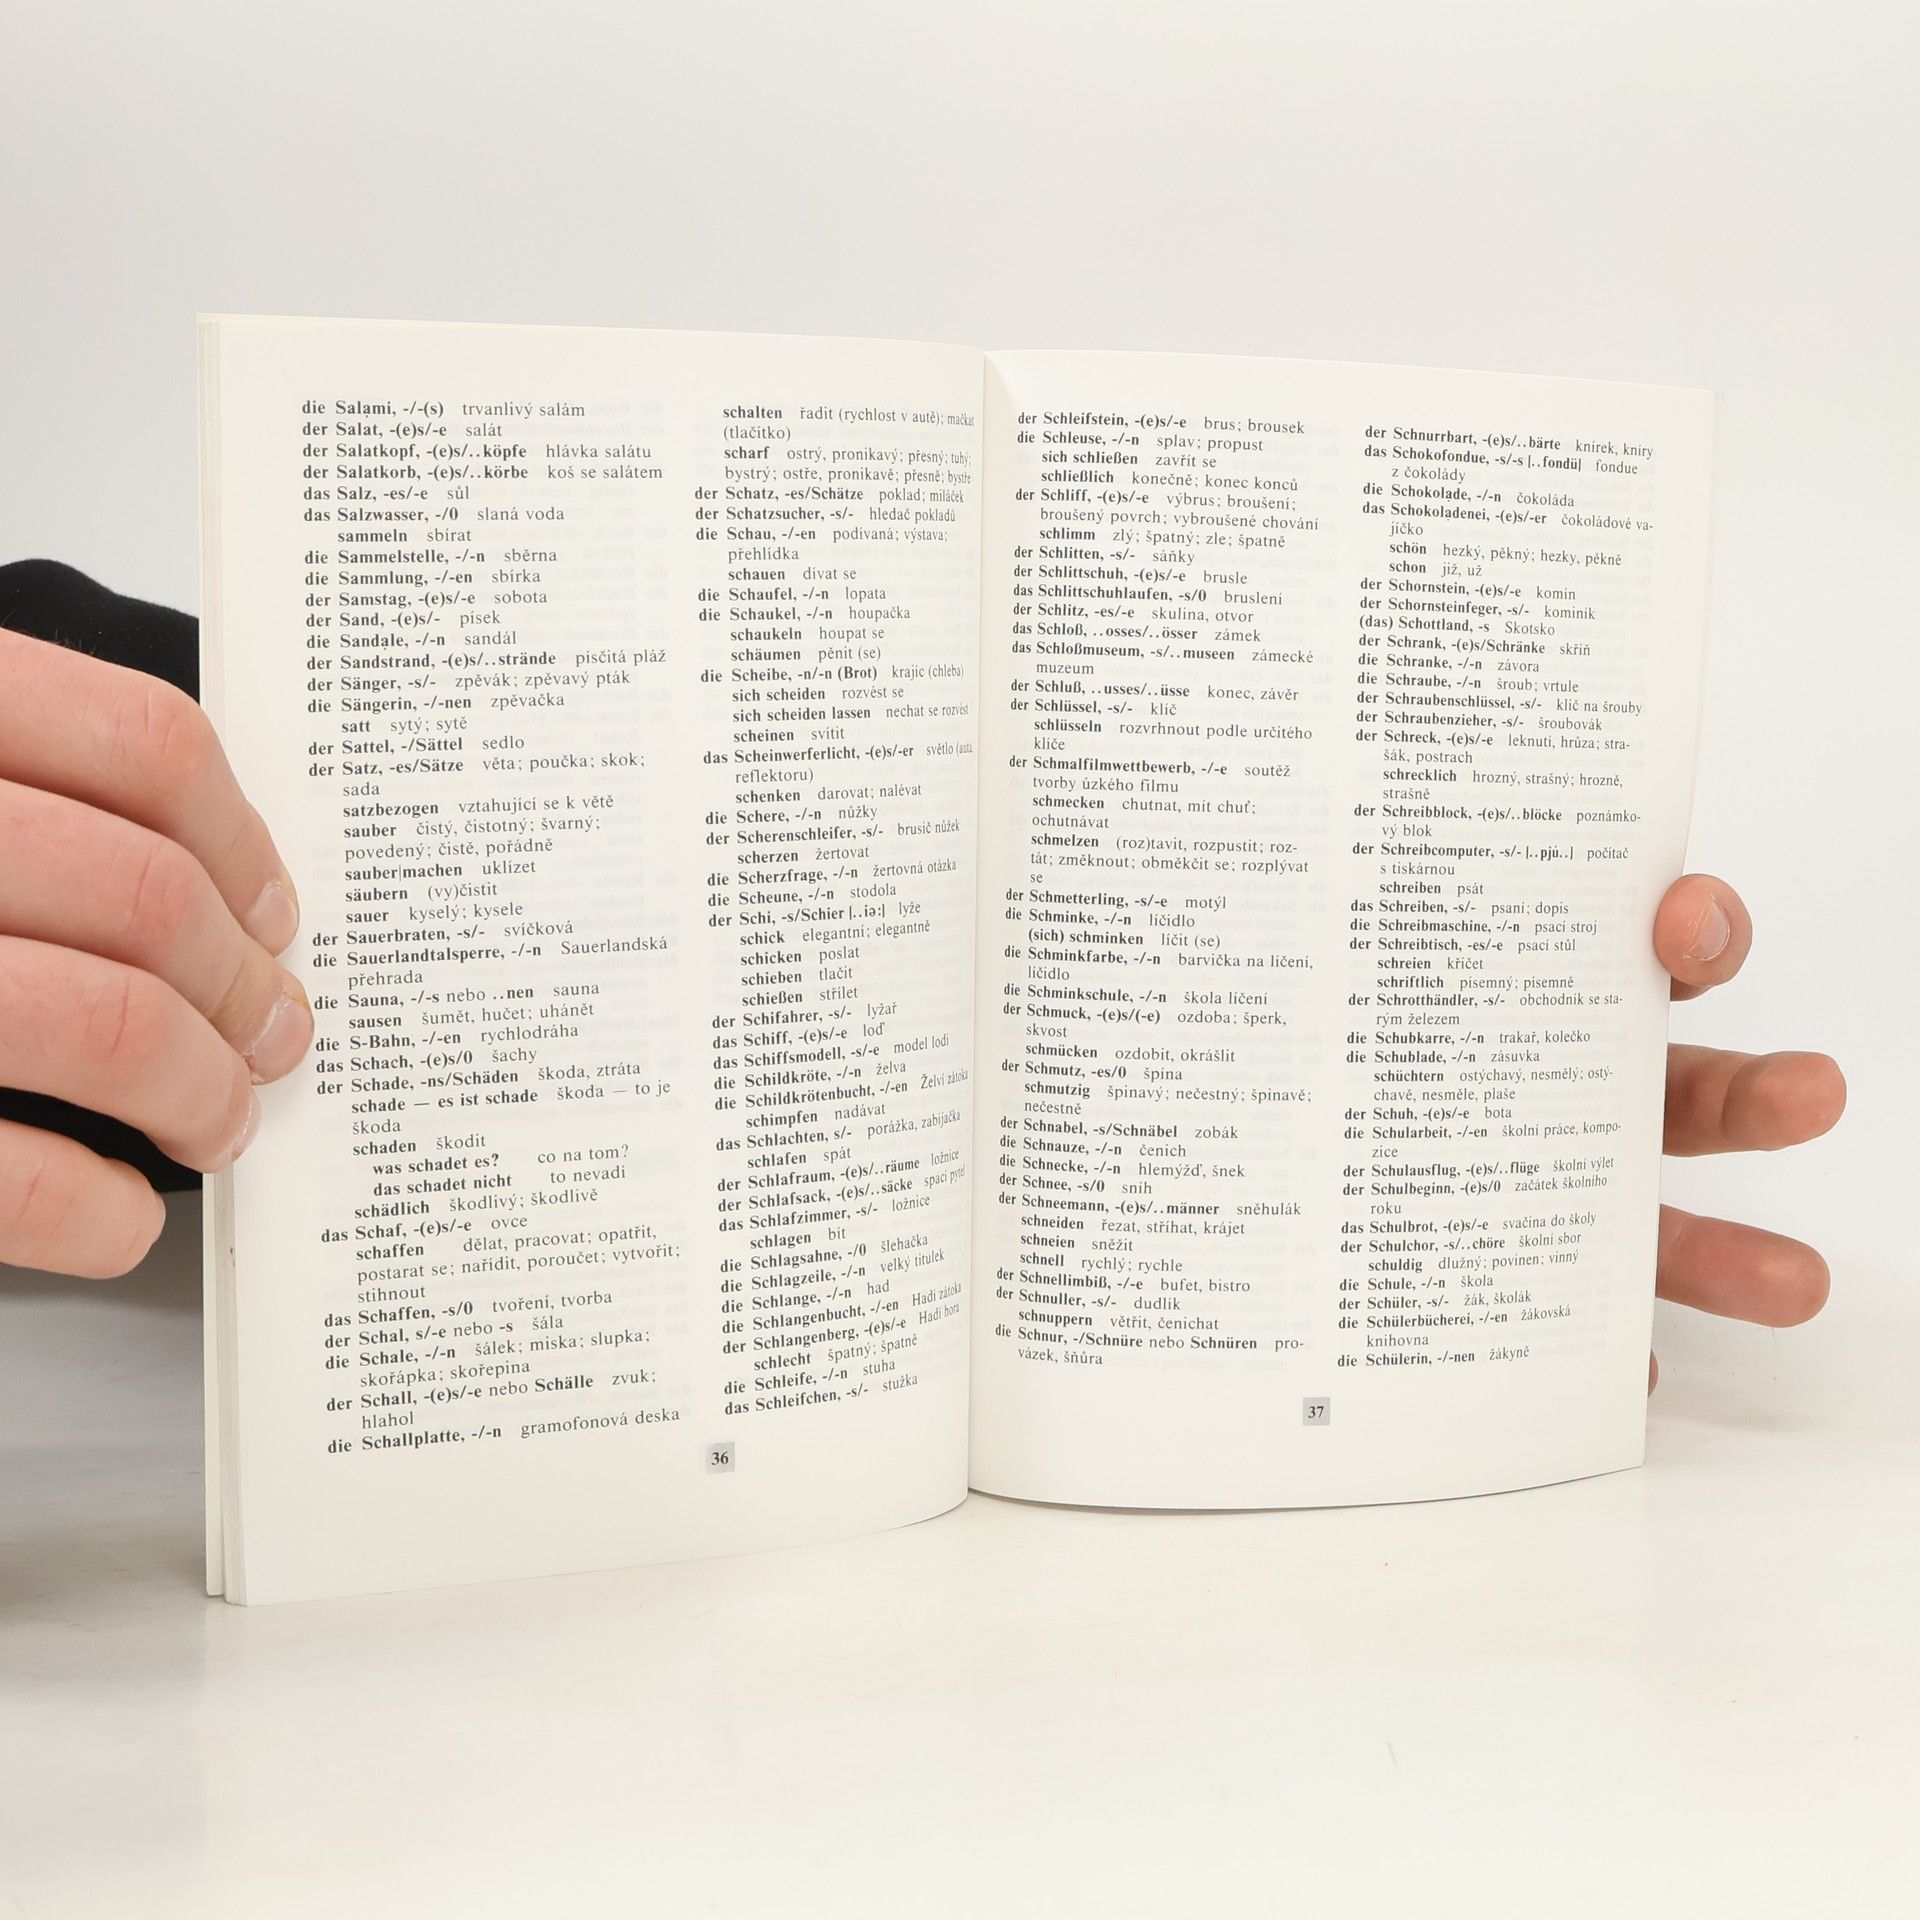 die Salami, -/-(s) trvanlivý salám
der Salat, -(e)s/-e salát
der Salatkopf, -(e)s/..köpfe hlávka salátu
der Salatkorb, -(e)s/..körbe koš se salátem
das Salz, -es/-e sůl
das Salzwasser, -/0 slaná voda
sammeln sbírat
die Sammelstelle, -/-n sběrna
die Sammlung, -/-en sbírka
der Samstag, -(e)s/-e sobota
der Sand, -(e)s/- písek
die Sandale, -/-n sandál
der Sandstrand, -(e)s/..strände písčitá pláž
der Sänger, -s/- zpěvák; zpěvavý pták
die Sängerin, -/-nen zpěvačka
satt sytý; sytě
der Sattel, -/Sättel sedlo
der Satz, -es/Sätze věta; poučka; skok;
sada
satzbezogen vztahující se k větě
sauber čistý, čistotný; švarný;
povedený; čistě, pořádně
sauber|machen uklízet
säubern (vy)čistit
sauer kyselý; kysele
der Sauerbraten, -s/- svíčková
die Sauerlandtalsperre, -/-n Sauerlandská
přehrada
die Sauna, -/-s nebo ..nen sauna
sausen šumět, hučet; uhánět
die S-Bahn, -/-en rychlodráha
das Schach, -(e)s/0 šachy
der Schade, -ns/Schäden škoda, ztráta
schade — es ist schade škoda — to je
škoda
schaden škodit
was schadet es? co na tom?
das schadet nicht to nevadí
schädlich škodlivý; škodlivě
das Schaf, -(e)s/-e ovce
schaffen dělat, pracovat; opatřit,
postarat se; nařídit, poroučet; vytvořit;
stihnout
das Schaffen, -s/0 tvoření, tvorba
der Schal, s/-e nebo -s šála
die Schale, -/-n šálek; miska; slupka;
skořápka; skořepina
der Schall, -(e)s/-e nebo Schälle zvuk;
hlahol
die Schallplatte, -/-n gramofonová deska
schalten řadit (rychlost v autě); mačkat
(tlačítko)
scharf ostrý, pronikavý; přesný; tuhý;
bystrý; ostře, pronikavě; přesně; bystře
der Schatz, -es/Schätze poklad; miláček
der Schatzsucher, -s/- hledač pokladů
die Schau, -/-en podívaná; výstava;
přehlídka
schauen dívat se
die Schaufel, -/-n lopata
die Schaukel, -/-n houpačka
schaukeln houpat se
schäumen pěnit (se)
die Scheibe, -n/-n (Brot) krajíc (chleba)
sich scheiden rozvést se
sich scheiden lassen nechat se rozvést
scheinen svítit
das Scheinwerferlicht, -(e)s/-er světlo (auta,
reflektoru)
schenken darovat; nalévat
die Schere, -/-n nůžky
der Scherenschleifer, -s/- brusič nůžek
scherzen žertovat
die Scherzfrage, -/-n žertovná otázka
die Scheune, -/-n stodola
der Schi, -s/Schier [..iə:] lyže
schick elegantní; elegantně
schicken poslat
schieben tlačit
schießen střílet
der Schifahrer, -s/- lyžař
das Schiff, -(e)s/-e loď
das Schiffsmodell, -s/-e model lodi
die Schildkröte, -/-n želva
die Schildkrötenbucht, -/-en Želví zátoka
schimpfen nadávat
das Schlachten, s/- porážka, zabijačka
schlafen spát
der Schlafraum, -(e)s/..räume ložnice
der Schlafsack, -(e)s/..säcke spací pytel
das Schlafzimmer, -s/- ložnice
schlagen bít
die Schlagsahne, -/0 šlehačka
die Schlagzeile, -/-n velký titulek
die Schlange, -/-n had
die Schlangenbucht, -/-en Hadí zátoka
der Schlangenberg, -(e)s/-e Hadí hora
schlecht špatný; špatně
die Schleife, -/-n stuha
das Schleifchen, -s/- stužka
36
der Schleifstein, -(e)s/-e brus; brousek
die Schleuse, -/-n splav; propust
sich schließen zavřít se
schließlich konečně; konec konců
der Schliff, -(e)s/-e výbrus; broušení;
broušený povrch; vybroušené chování
schlimm zlý; špatný; zle; špatně
der Schlitten, -s/- sáňky
der Schlittschuh, -(e)s/-e brusle
das Schlittschuhlaufen, -s/0 bruslení
der Schlitz, -es/-e skulina, otvor
das Schloß, ..osses/..össer zámek
das Schloßmuseum, -s/..museen zámecké
muzeum
der Schluß, ..usses/..üsse konec, závěr
der Schlüssel, -s/- klíč
schlüsseln rozvrhnout podle určitého
klíče
der Schmalfilmwettbewerb, -/-e soutěž
tvorby úzkého filmu
schmecken chutnat, mít chuť;
ochutnávat
schmelzen (roz)tavit, rozpustit; roz-
tát; změknout; obměkčit se; rozplývat
se
der Schmetterling, -s/-e motýl
die Schminke, -/-n líčidlo
(sich) schminken líčit (se)
die Schminkfarbe, -/-n barvička na líčení,
líčidlo
die Schminkschule, -/-n škola líčení
der Schmuck, -(e)s/(-e) ozdoba; šperk,
skvost
schmücken ozdobit, okrášlit
der Schmutz, -es/0 špína
schmutzig špinavý; nečestný; špinavě;
nečestně
der Schnabel, -s/Schnäbel zobák
die Schnauze, -/-n čenich
die Schnecke, -/-n hlemýžď, šnek
der Schnee, -s/0 sníh
der Schneemann, -(e)s/..männer sněhulák
schneiden řezat, stříhat, krájet
schneien sněžit
schnell rychlý; rychle
der Schnellimbiß, -/-e bufet, bistro
der Schnuller, -s/- dudlík
schnuppern větřit, čenichat
die Schnur, -/Schnüre nebo Schnüren pro-
vázek, šňůra
der Schnurrbart, -(e)s/..bärte knírek, kníry
das Schokofondue, -s/-s [..fondü] fondue
z čokolády
die Schokolade, -/-n čokoláda
das Schokoladenei, -(e)s/-er čokoládové va-
jíčko
schön hezký, pěkný; hezky, pěkně
schon již, už
der Schornstein, -(e)s/-e komín
der Schornsteinfeger, -s/- kominík
(das) Schottland, -s Skotsko
der Schrank, -(e)s/Schränke skříň
die Schranke, -/-n závora
die Schraube, -/-n šroub; vrtule
der Schraubenschlüssel, -s/- klíč na šrouby
der Schraubenzieher, -s/- šroubovák
der Schreck, -(e)s/-e leknutí, hrůza; stra-
šák, postrach
schrecklich hrozný, strašný; hrozně,
strašně
der Schreibblock, -(e)s/..blöcke poznámko-
vý blok
der Schreibcomputer, -s/- [..pjú..] počítač
s tiskárnou
schreiben psát
das Schreiben, -s/- psaní; dopis
die Schreibmaschine, -/-n psací stroj
der Schreibtisch, -es/-e psací stůl
schreien křičet
schriftlich písemný; písemně
der Schrotthändler, -s/- obchodník se sta-
rým železem
die Schubkarre, -/-n trakař, kolečko
die Schublade, -/-n zásuvka
schüchtern ostýchavý, nesmělý; ostý-
chavě, nesměle, plaše
der Schuh, -(e)s/-e bota
die Schularbeit, -/-en školní práce, kompo-
zice
der Schulausflug, -(e)s/..flüge školní výlet
der Schulbeginn, -(e)s/0 začátek školního
roku
das Schulbrot, -(e)s/-e svačina do školy
der Schulchor, -s/..chöre školní sbor
schuldig dlužný; povinen; vinný
die Schule, -/-n škola
der Schüler, -s/- žák, školák
die Schülerbücherei, -/-en žákovská
knihovna
die Schülerin, -/-nen žákyně
37